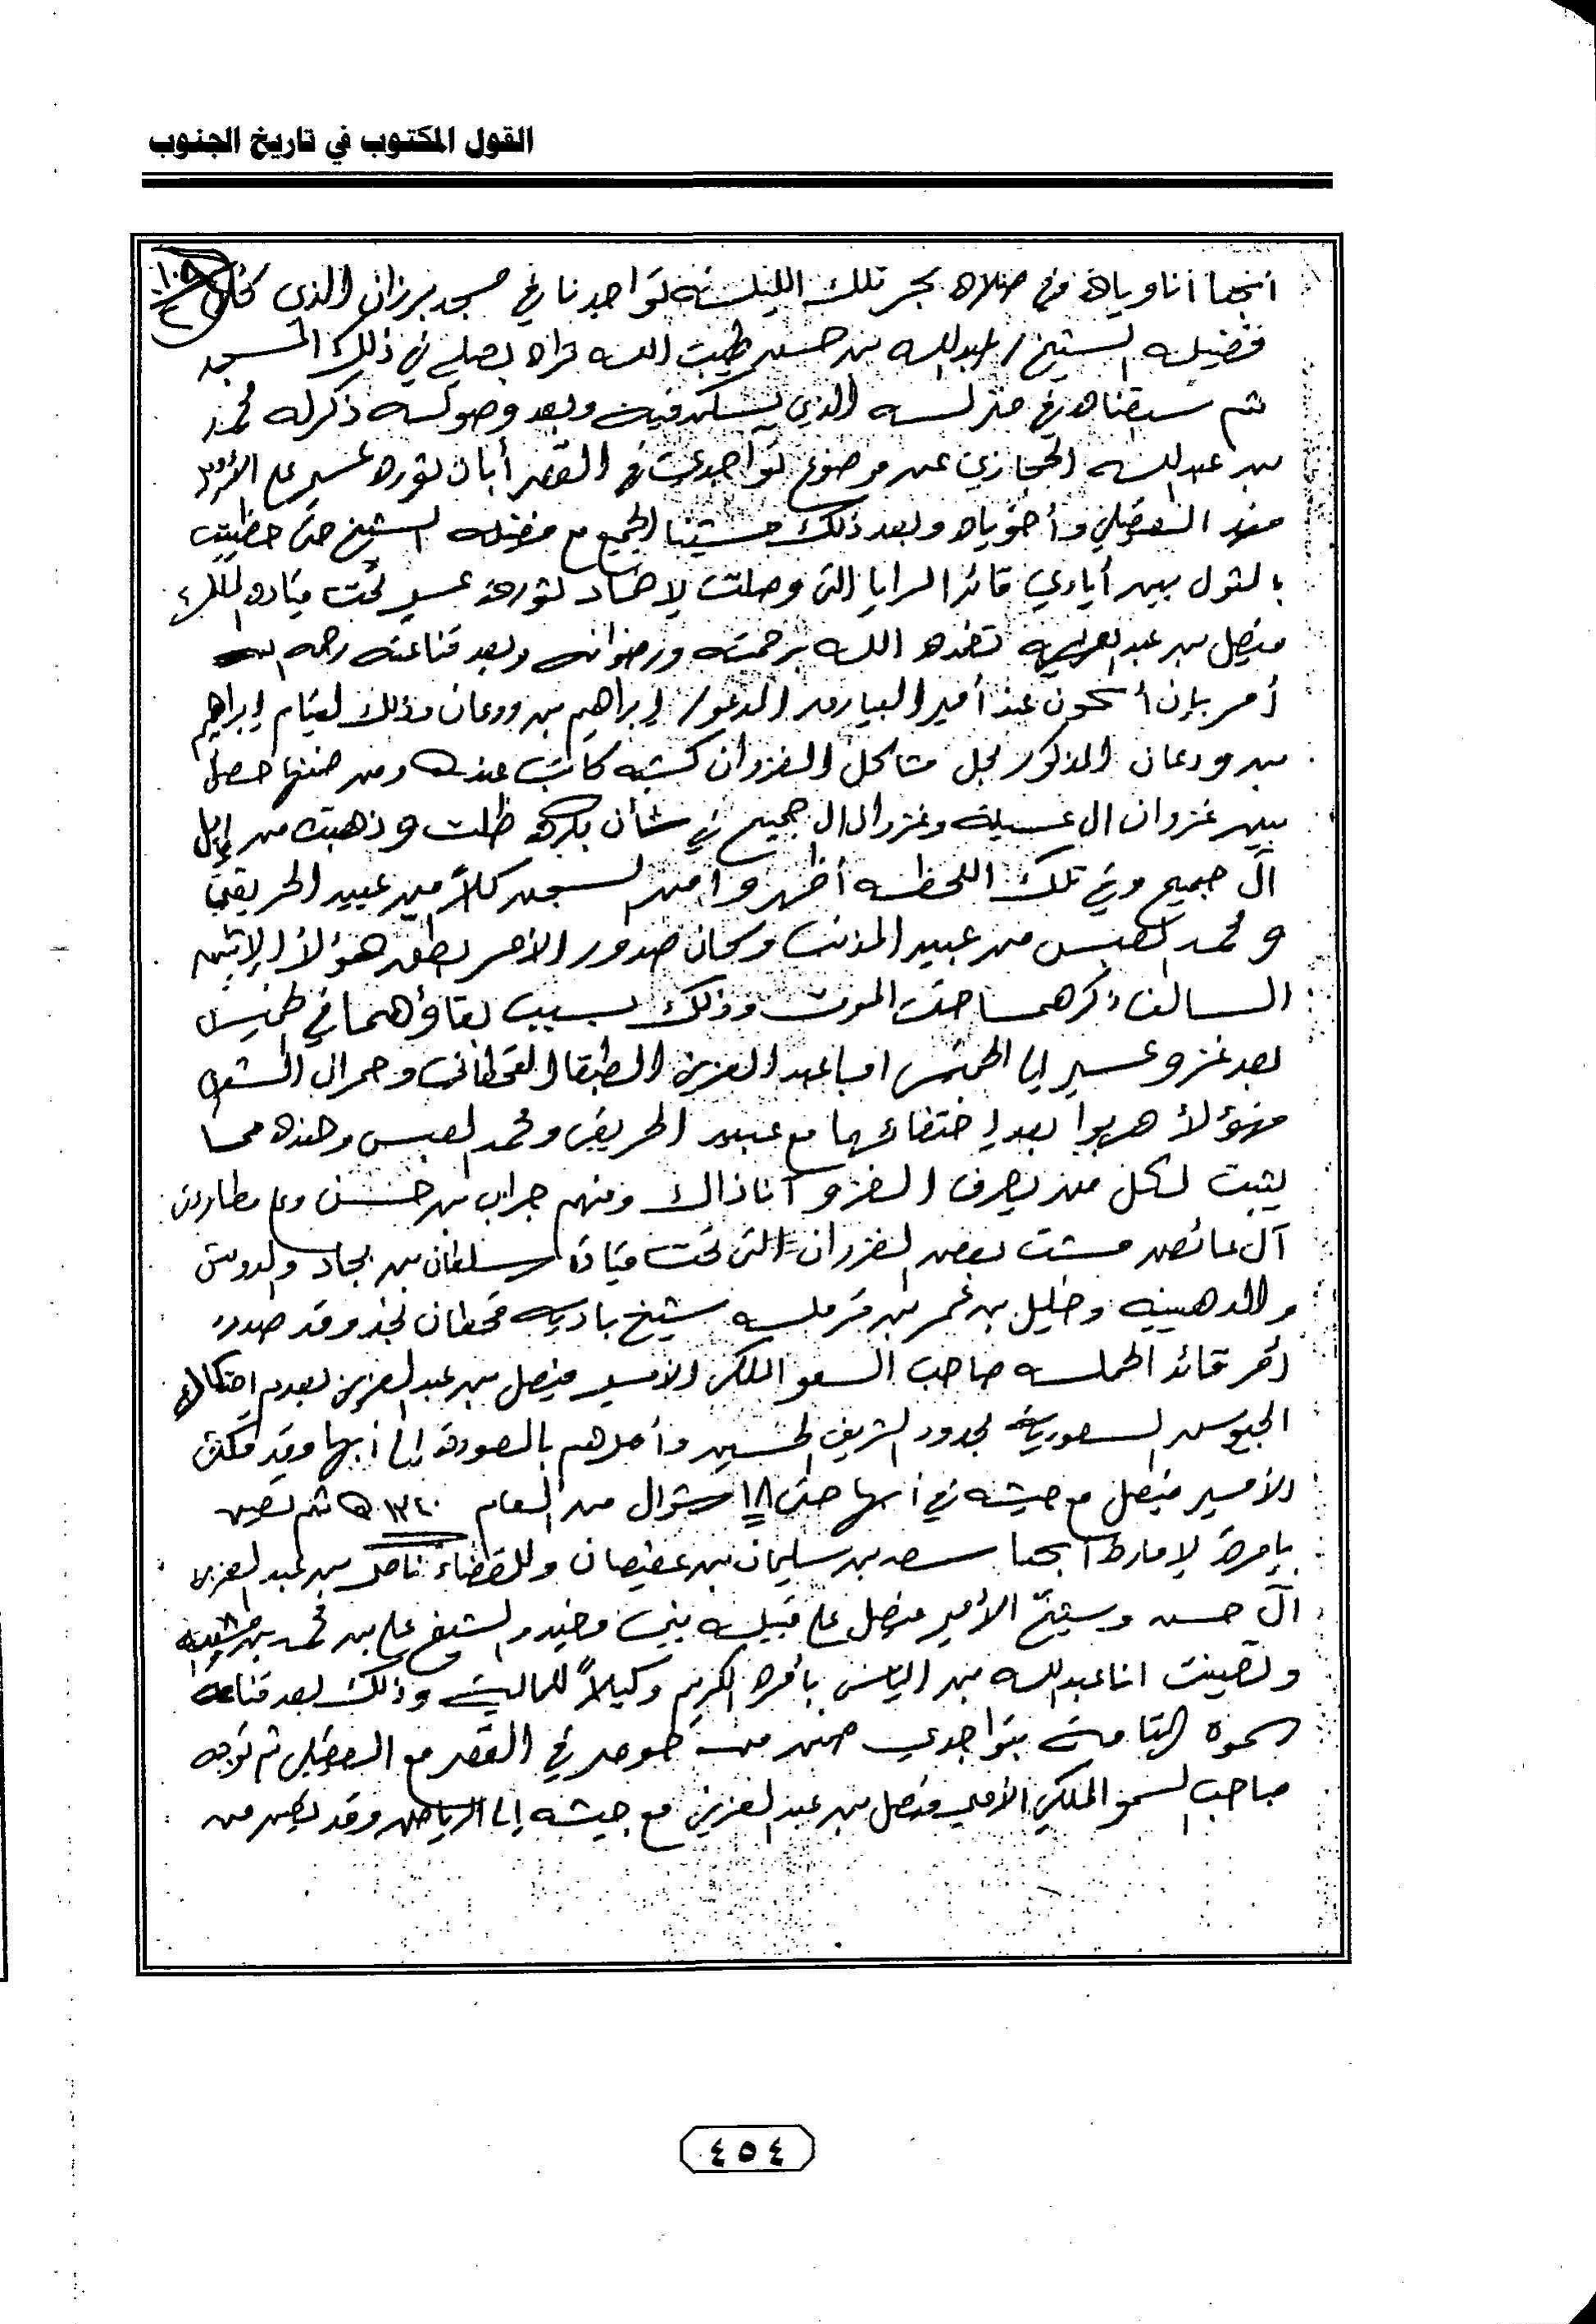 القول المكتوب في تاريخ الجنوب
أنا وياه في صلاة فجر تلك الليلة لتواجدنا في مسجد برزان الذي كان
فضيلة الشيخ / عبدالله بن حسن طيب الله ثراه يصلي في ذلك المسجد
ثم سبقناه في منزله الذي يسكن فيه وبعد وصوله ذكر له محمد
بن عبدالله الحجازي عن موضوع تواجدي في القصر أبان ثورة عسير على
فهد العقيلي وأخوياه وبعد ذلك مشينا الجميع مع فضيلة الشيخ حتى حظيت
بالمثول بين أيادي قائد السرايا التي وصلت لإخماد ثورة عسير تحت قيادة الملك
فيصل بن عبدالعزيز تغمده الله برحمته ورضوانه وبعد قناعته رحمه الله
أمر بإن أكون عند أمير البيارق المدعو / إبراهيم بن ودعان وذلك لقيام إبراهيم
بن ودعان المذكور بحل مشاكل الغزوان كشبه كاتب عنده ومن ضمنها حصل
بين غزوان ال عسيلة وغزوان ال جميح في شأن بكرة ظلت وذهبت من إبل
آل جميح وفي تلك اللحظة أظهروا من السجن كلاً من عبيد الحريقي
و محمد العبس من عبيد المذنب وكان صدور الأمر بطق هؤلاء الإثنين
السالف ذكرهما حتى الموت وذلك بسبب بقاؤهما في خميس
بعد غزو عسير إلى الخميس اما عبد العزيز القحطاني وحمران
فهؤلاء هربوا بعد إختفائهما مع عبيد الحريقي ومحمد العبس وهذه مما
يثبت لكل من يعرف الغزو آناذاك ومنهم جراب بن حسن وعلى مطاردين
آل عائض مشت بعض الغزوان التي تحت قيادة سلطان بن بجاد والدويش
و الدهينه وخليل بن عمر بن قرمله شيخ بادية قحطان نجد وقد صدر
أمر قائد الحملة صاحب السمو الملكي الأمير فيصل بن عبد العزيز بعدم إحتكاك
الجيوش السعودية بحدود الشريف الحسين وأمرهم بالعودة إلى أبها وقد مكث
الأمير فيصل مع جيشه في أبها حتى ١٨ شوال من العام ١٣٤٠ هـ ثم تعين
بإمرة لإمارة أبها سعد بن سليمان بن عفيصان وللقضاء ناصر بن عبد العزيز
آل حسن وشيخ الأمير فيصل على قبيلة بني مغيد الشيخ علي بن محمد بن
و تعينت انا عبدالله بن الياس بأمره الكريم وكيلاً للمالية وذلك بعد قناعة
سموه التامة بتواجدي ضمن من حوصر في القصر مع العقيلي ثم توجه
صاحب السمو الملكي الأمير فيصل بن عبد العزيز مع جيشه إلى الرياض وقد تعين من
٤٥٤